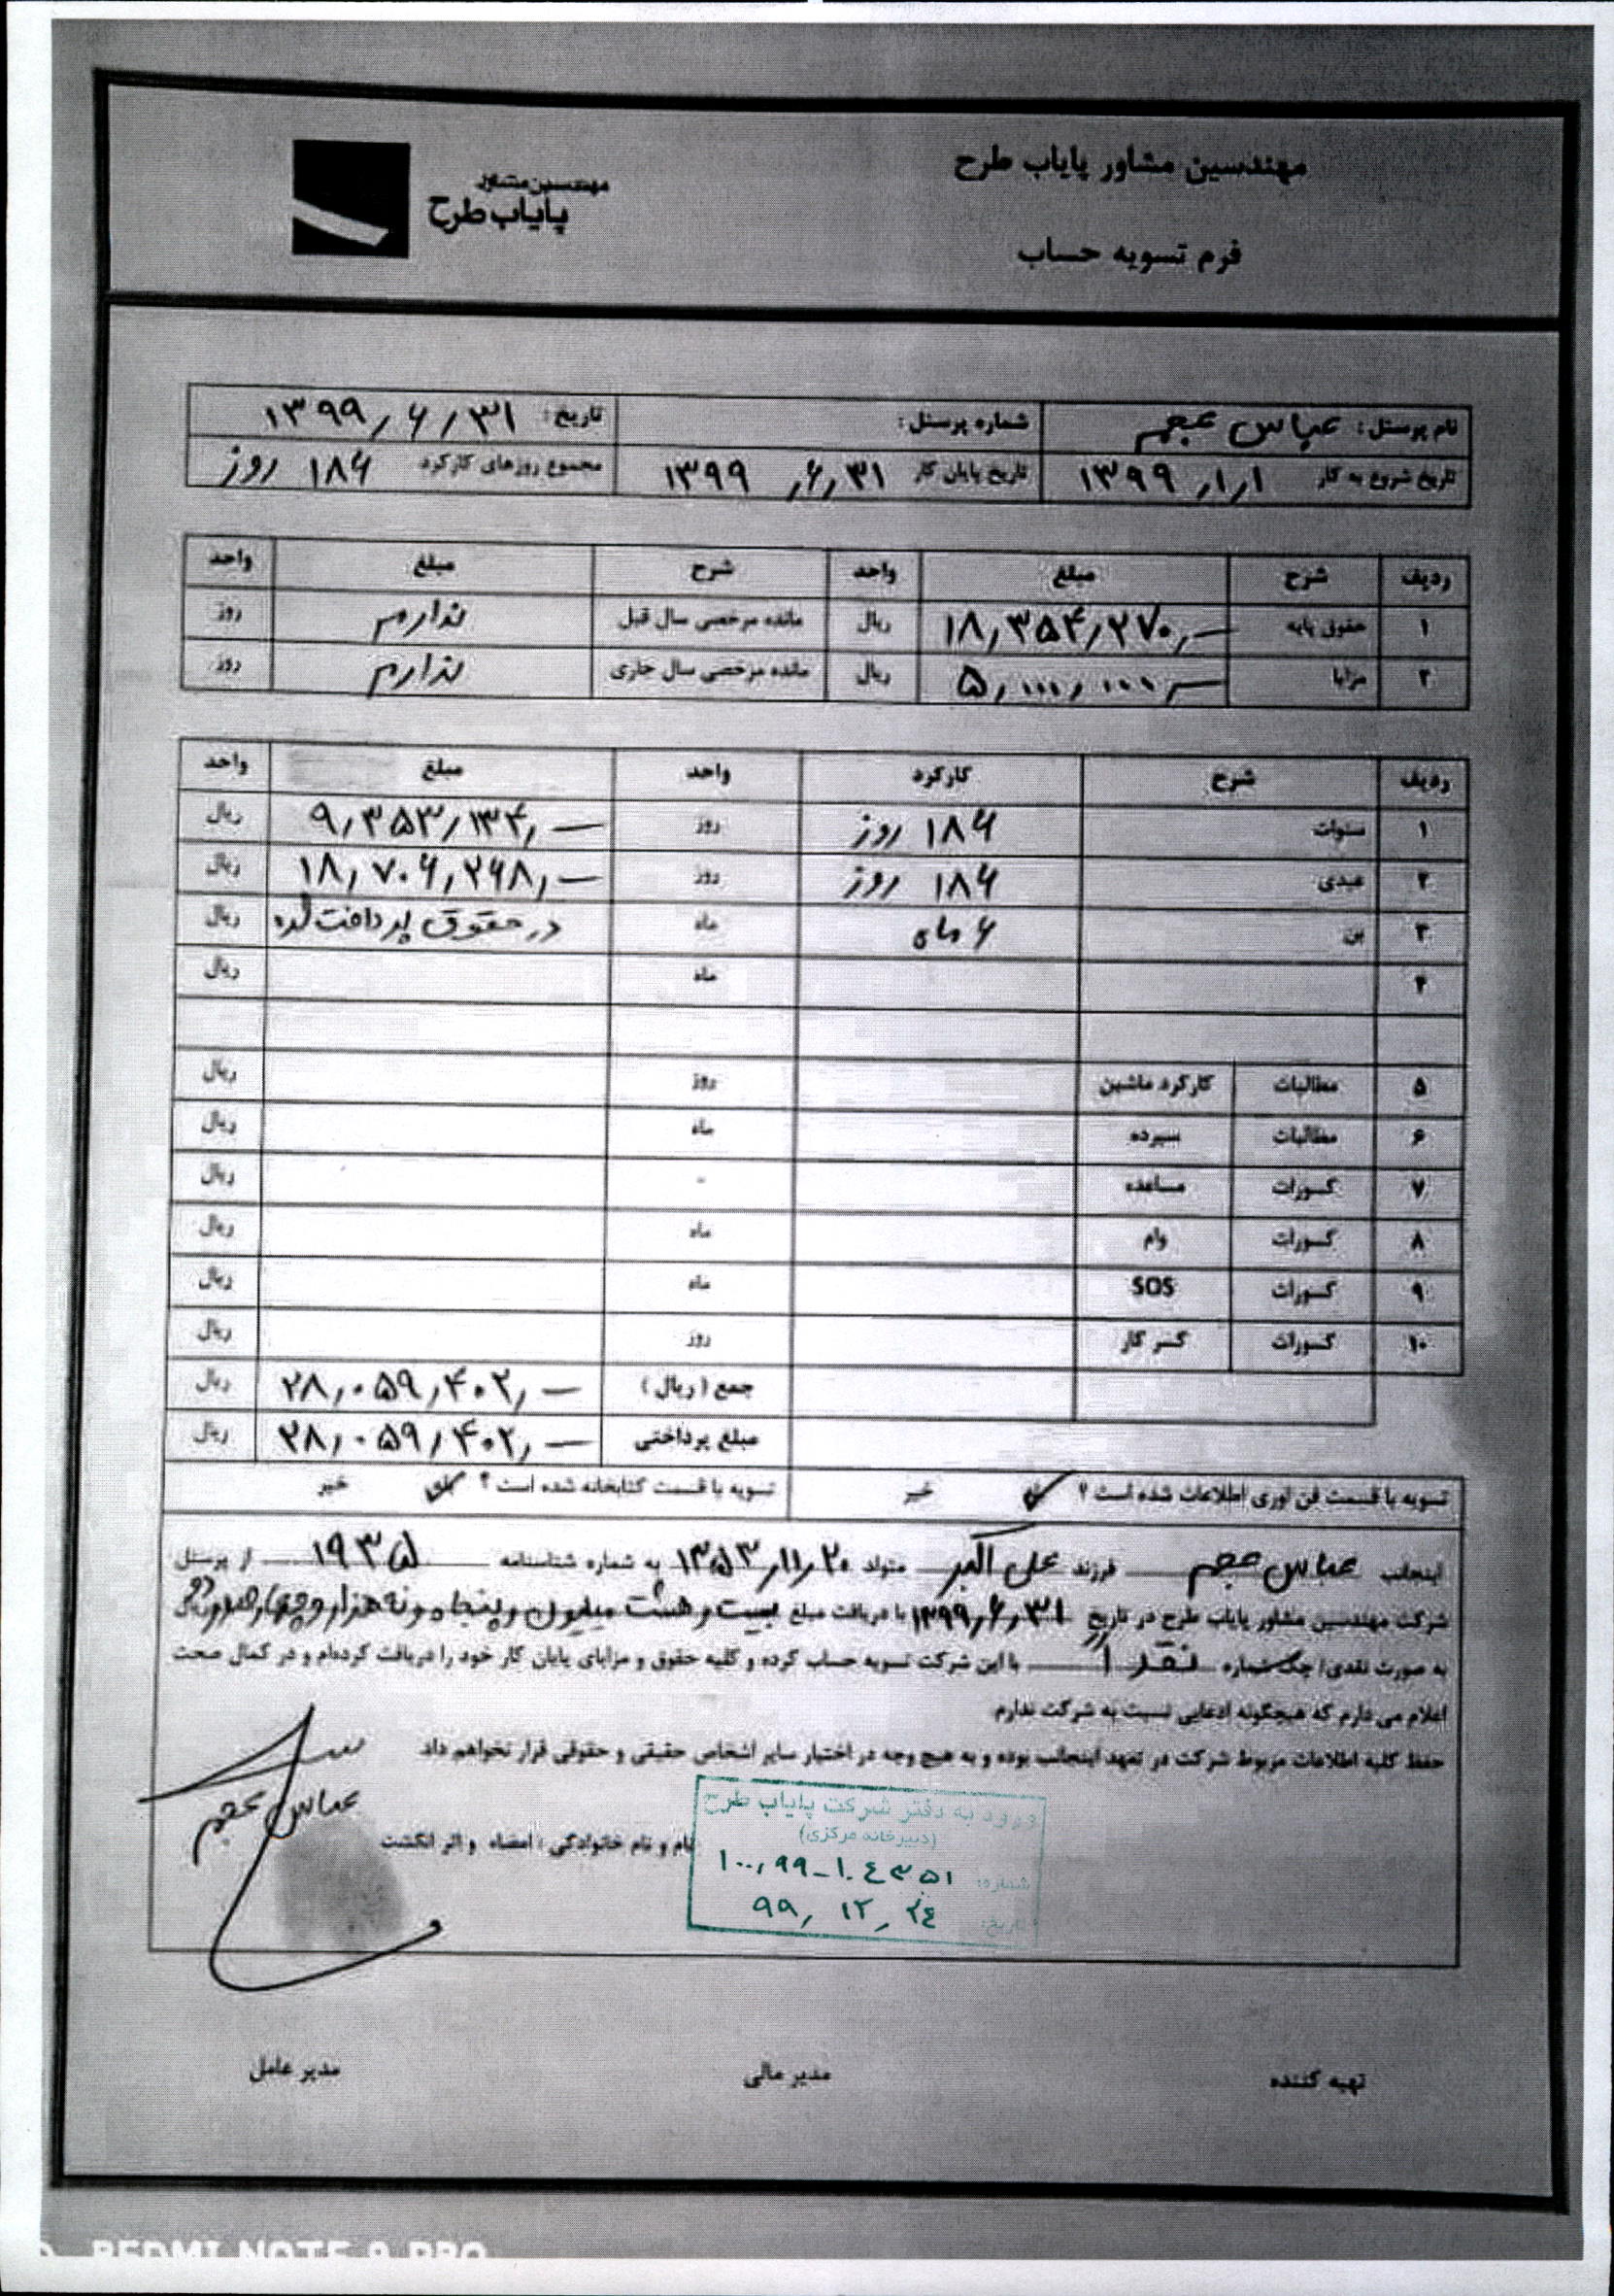 مهندسین مشاور پایاب طرح
مهندسین مشاور
پایاب طرح
فرم تسویه حساب
نام پرسنل : عباس عجم شماره پرسنل : تاریخ : ۱۳۹۹/۶/۳۱
تاریخ شروع به کار ۱۳۹۹/۱/۱ تاریخ پایان کار ۱۳۹۹/۶/۳۱ مجموع روزهای کارکرد ۱۸۶ روز
ردیف شرح مبلغ واحد شرح مبلغ واحد
۱ حقوق پایه ۱۸,۳۵۴,۲۷۰,— ریال مانده مرخصی سال قبل ندارم روز
۲ مزایا ۵,۰۰۰,۰۰۰,— ریال مانده مرخصی سال جاری ندارم روز
ردیف شرح کارکرد واحد مبلغ واحد
۱ سنوات ۱۸۶ روز روز ۹,۳۵۳,۱۳۴,— ریال
۲ عیدی ۱۸۶ روز روز ۱۸,۷۰۶,۲۶۸,— ریال
۳ بن ۶ ماه ماه در حقوق پرداخت شده ریال
۴ ماه ریال
۵ مطالبات کارکرد ماشین روز ریال
۶ مطالبات سپرده ماه ریال
۷ کسورات مساعده - ریال
۸ کسورات وام ماه ریال
۹ کسورات SOS ماه ریال
۱۰ کسورات کسر کار روز ریال
جمع (ریال) ۲۸,۰۵۹,۴۰۲,— ریال
مبلغ پرداختی ۲۸,۰۵۹,۴۰۲,— ریال
تسویه با قسمت فن اوری اطلاعات شده است ؟ بلی خیر تسویه با قسمت کتابخانه شده است ؟ بلی خیر
اینجانب عباس عجم فرزند علی اکبر متولد ۱۳۵۳/۱۱/۲۰ به شماره شناسنامه ۱۹۳۵ از پرسنل
شرکت مهندسین مشاور پایاب طرح در تاریخ ۱۳۹۹/۶/۳۱ با دریافت مبلغ بیست و هشت میلیون و پنجاه و نه هزار و چهارصد و دو ریال
به صورت نقدی/ چک شماره نقداً با این شرکت تسویه حساب کرده و کلیه حقوق و مزایای پایان کار خود را دریافت کرده‌ام و در کمال صحت
اعلام می دارم که هیچگونه ادعایی نسبت به شرکت ندارم
حفظ کلیه اطلاعات مربوط شرکت در تعهد اینجانب بوده و به هیچ وجه در اختیار سایر اشخاص حقیقی و حقوقی قرار نخواهم داد
عباس عجم
نام و نام خانوادگی ، امضاء و اثر انگشت
ورود به دفتر شرکت پایاب طرح
(دبیرخانه مرکزی)
شماره: ۱۰۰,۹۹-۱۰۴۳۵۱
تاریخ: ۹۹,۱۲,۲۴
تهیه کننده مدیر مالی مدیر عامل
REDMI NOTE 8 PRO